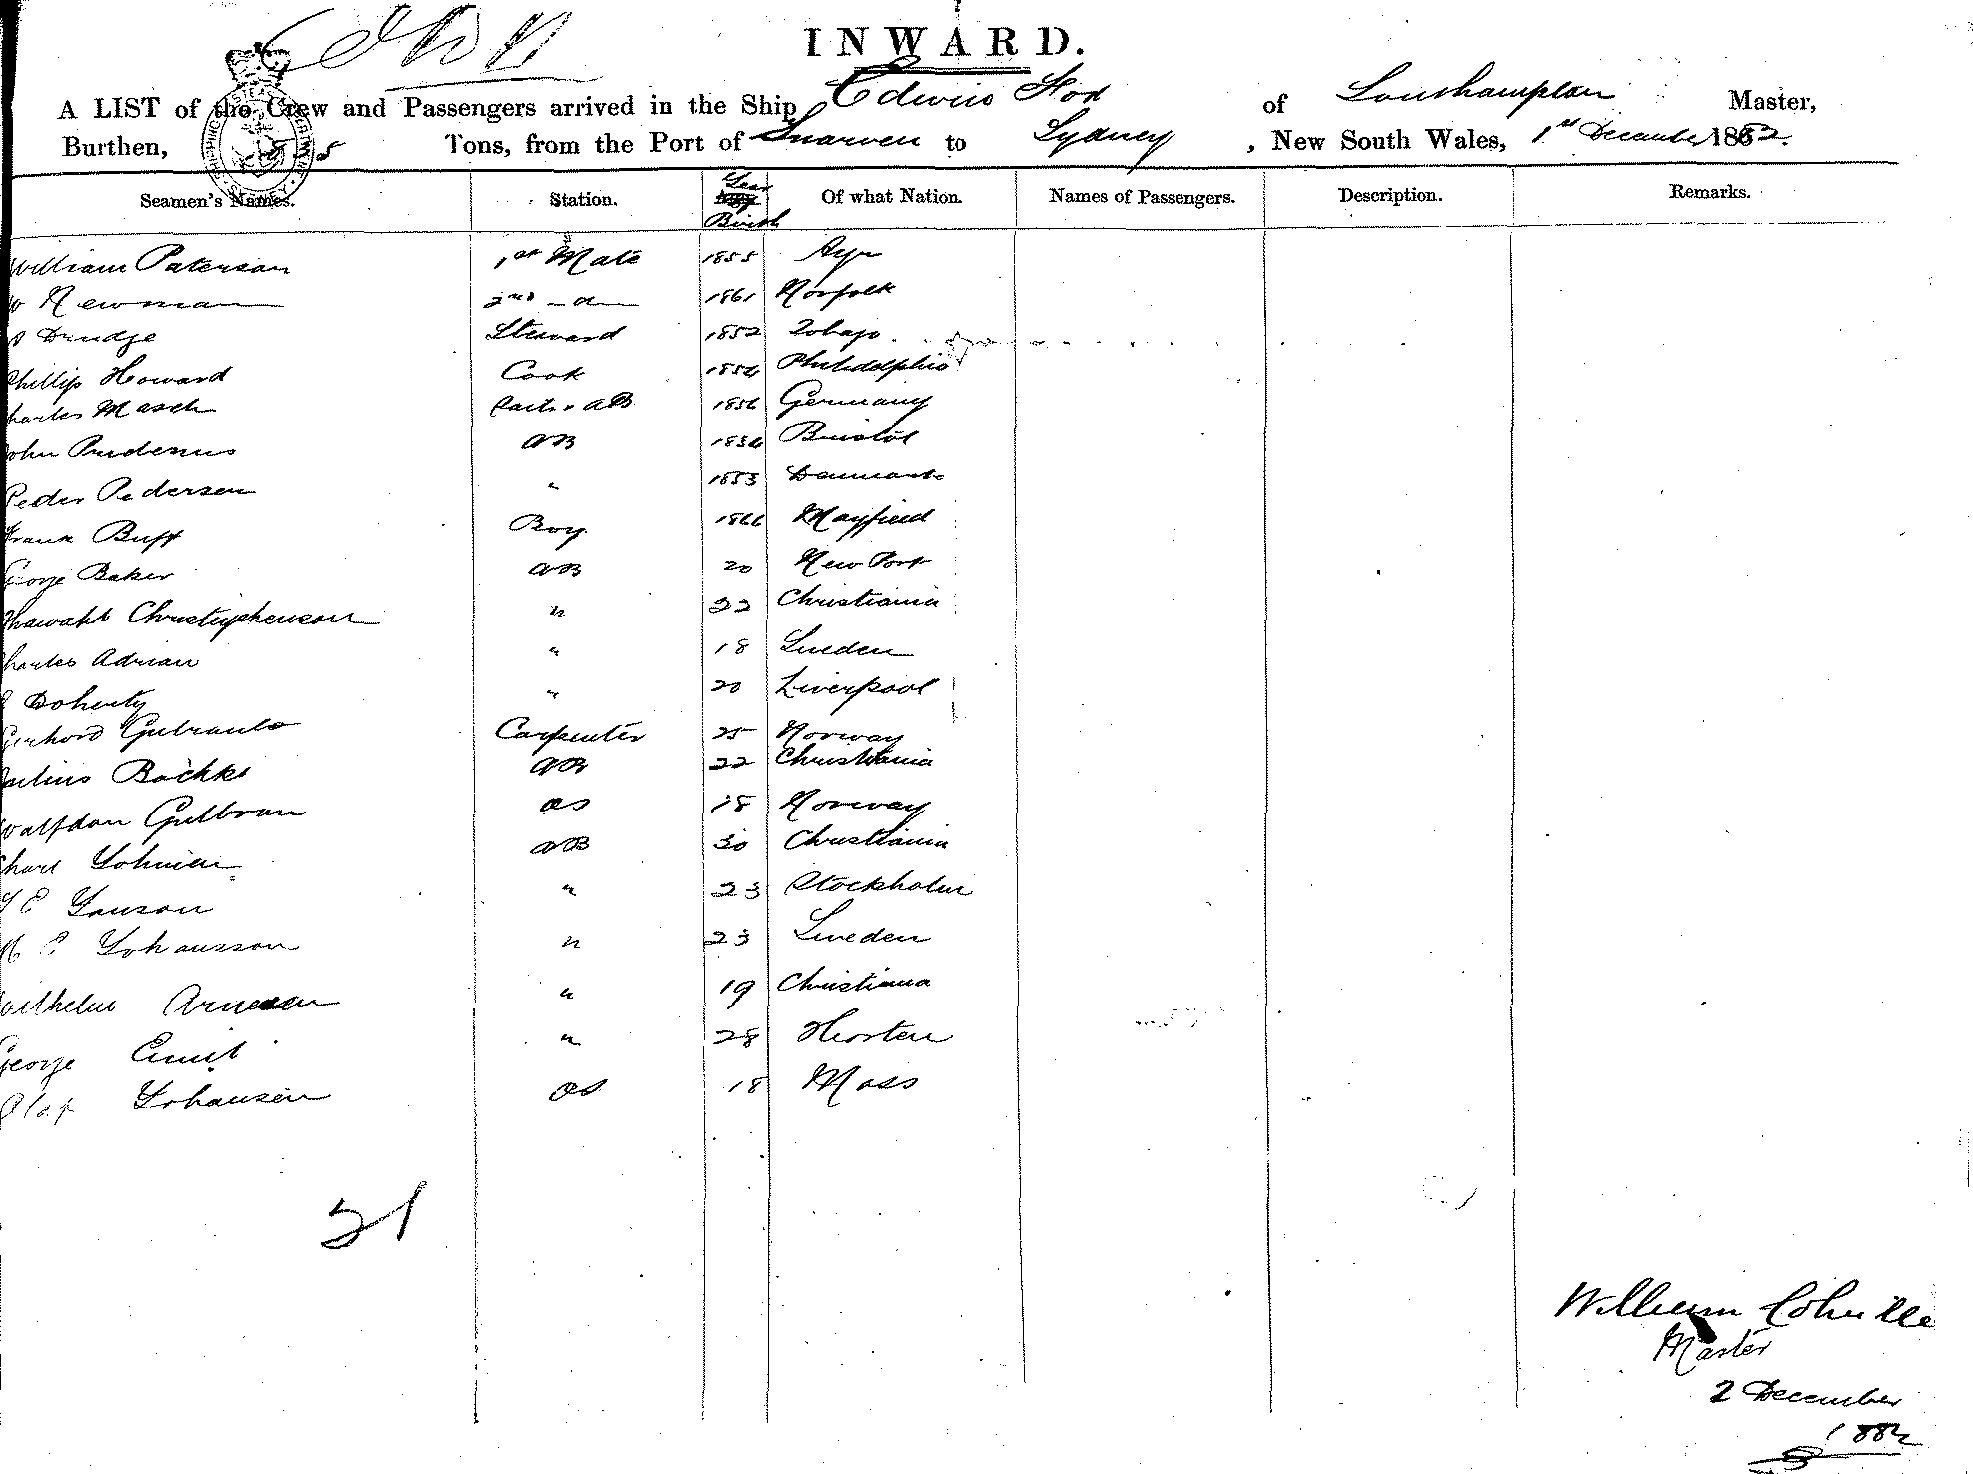 INWARD.
A LIST of the Crew and Passengers arrived in the Ship Edwin Fox of Southampton Master,
Burthen, Tons, from the Port of to Sydney, New South Wales, 1st December 1882.
Seamen's Names. Station. Year Birth Of what Nation. Names of Passengers. Description. Remarks.
William Paterson 1st Mate 1855 Ayr
Newman 2nd do 1861 Norfolk
Drudge Steward 1852 Tobago
Phillip Howard Cook 1854 Philadelphia
Charles Masch AB 1856 Germany
John AB 1836 Bristol
Peder Pedersen " 1853 Danmark
Frank Buff Boy 1866 Mayfield
George Baker AB 20 New Port
Christophenson " 22 Christiania
Charles Adrian " 18 Sweden
Doherty " 20 Liverpool
Gerhard Carpenter 25 Norway
Julius AB 22 Christiania
Gulbran OS 18 Norway
AB 30 Christiania
" 23 Stockholm
Yohansson " 23 Sweden
Wilhelm Arnesen " 19 Christiana
George " 28 Horten
Olaf Yohansen OS 18 Moss
21
William Colville
Master
2 December
1882